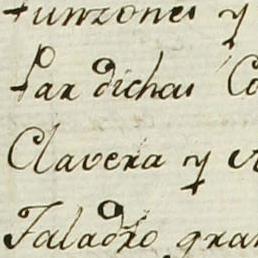 Punzones y
Par dichas
Clavera y
Taladro gran